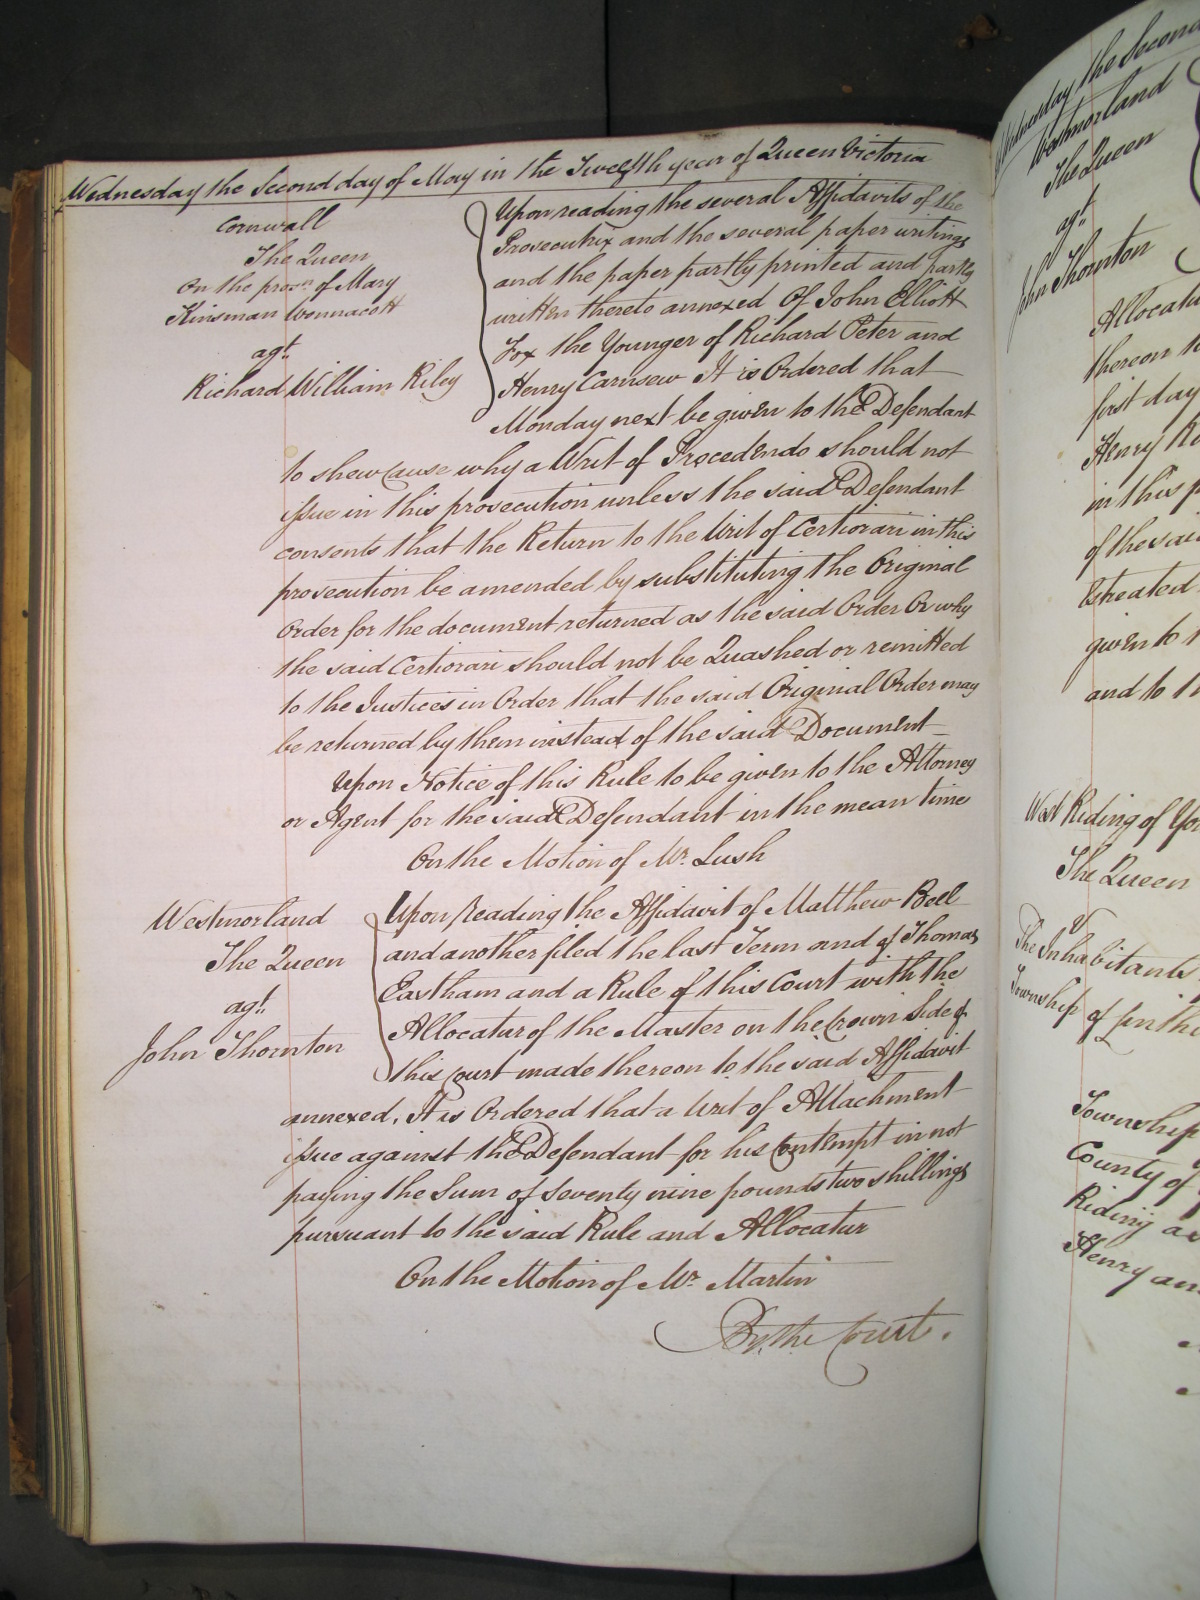 Wednesday the Second day of May in the Twelfth year of Queen Victoria
Cornwall
The Queen
On the prosn. of Mary
Kinsman Wonnacott
agt.
Richard William Riley
Upon reading the several Affidavits of the
Prosecutrix and the several paper writings
and the paper partly printed and partly
written thereto annexed Of John Elliott
Fox the Younger of Richard Peter and
Henry Carnsew It is Ordered that
Monday next be given to the Defendant
to shew Cause why a Writ of Procedendo should not
issue in this prosecution unless the said Defendant
consents that the Return to the Writ of Certiorari in this
prosecution be amended by substituting the Original
Order for the document returned as the said Order Or why
the said Certiorari should not be Quashed or remitted
to the Justices in Order that the said Original Order may
be returned by them instead of the said Document
Upon Notice of this Rule to be given to the Attorney
or Agent for the said Defendant in the mean time
On the Motion of Mr. Lush
Westmorland
The Queen
agt.
John Thornton
Upon Reading the Affidavit of Matthew Bell
and another filed the last Term and of Thomas
Eastham and a Rule of this Court with the
Allocatur of the Master on the Crown Side of
this Court made thereon to the said Affidavit
annexed, It is Ordered that a Writ of Attachment
issue against the Defendant for his Contempt in not
paying the Sum of Seventy nine pounds two shillings
pursuant to the said Rule and Allocatur
On the Motion of Mr. Martin
By the Court.
Wednesday the Second
Westmorland
The Queen
agt.
John Thornton
thereon
first day
Henry
in this
of the said
Estreated
given to
and to
West Riding of
The Queen
v
The Inhabitants
Township of
Township
County of
Riding
Henry